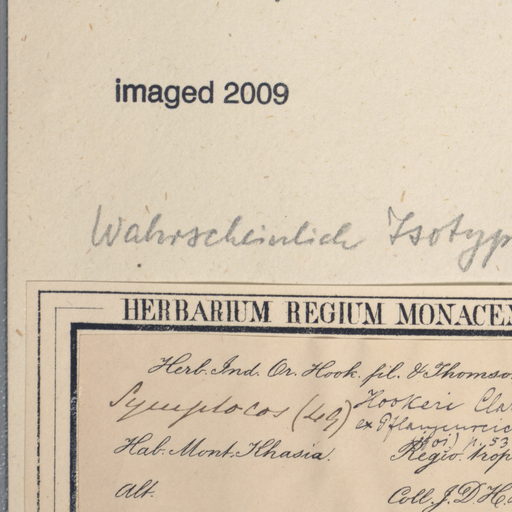 imaged 2009
Wahrscheinlich Isotyp
HERBARIUM REGIUM MONACEN
Herb. Ind. Or. Hook. fil. & Thomso
Symplocos (49) Hookeri Clar
ex Pflanzenreich
p. 53
Hab. Mont. Khasia. Regio. trop
Alt. Coll. J. D. H.